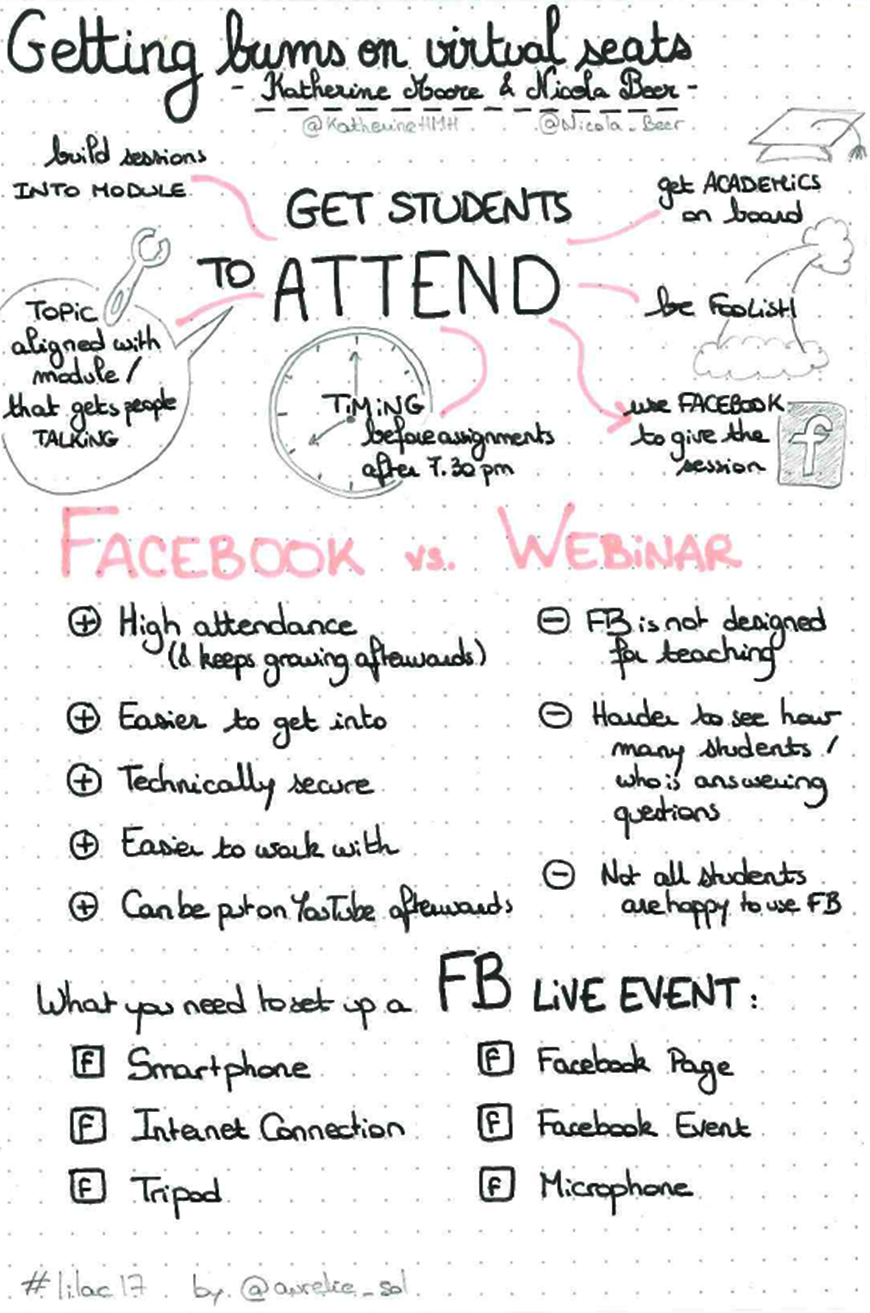 Getting bums on virtual seats
- Katherine Moore & Nicola Beer -
@KatherineHMH @Nicola_Beer
build sessions
INTO MODULE
get ACADEMICS
on board
GET STUDENTS
TO ATTEND
be FOOLISH!
TOPIC
aligned with
module /
that gets people
TALKING
TIMING
before assignments
after 7.30 pm
use FACEBOOK
to give the
session
f
FACEBOOK vs. WEBINAR
+ High attendance
(& keeps growing afterwards)
+ Easier to get into
+ Technically secure
+ Easier to work with
+ Can be put on YouTube afterwards
- FB is not designed
for teaching
- Harder to see how
many students /
who is answering
questions
- Not all students
are happy to use FB
What you need to set up a FB LIVE EVENT:
f Smartphone
f Internet Connection
f Tripod
f Facebook Page
f Facebook Event
f Microphone
#lilac17 by @aurelie_sol